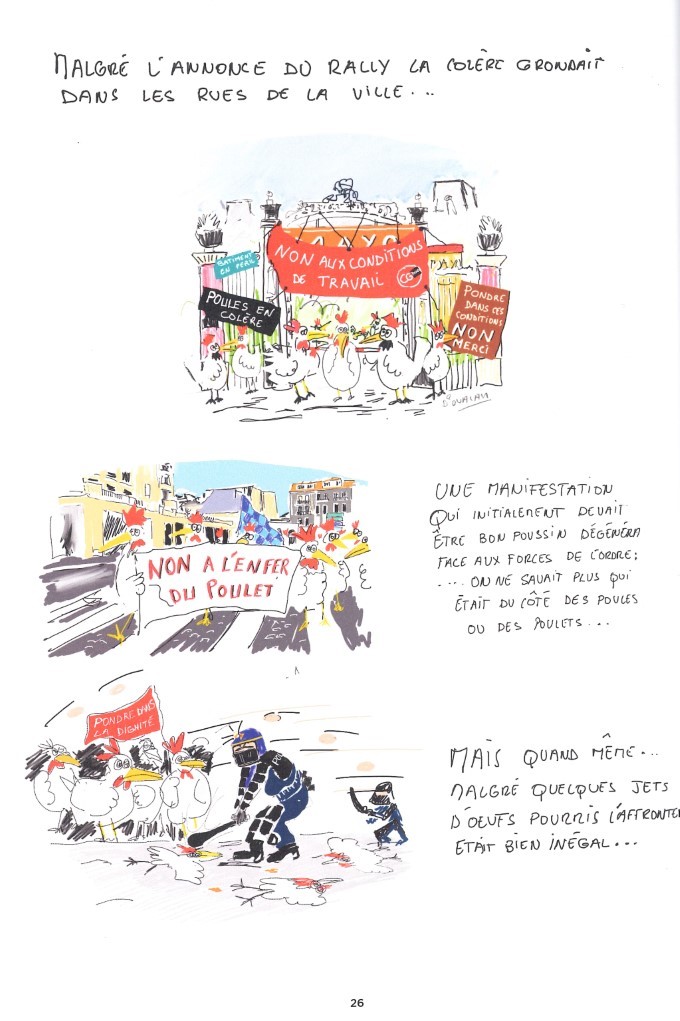 MALGRÉ L'ANNONCE DU RALLY LA COLÈRE GRONDAIT
DANS LES RUES DE LA VILLE...
BATIMENT
EN PÉRIL
NON AUX CONDITIONS
DE TRAVAIL
POULES EN
COLÈRE
PONDRE
DANS CES
CONDITIONS
NON
MERCI
NON A L'ENFER
DU POULET
UNE MANIFESTATION
QUI INITIALEMENT DEVAIT
ÊTRE BON POUSSIN DÉGÉNÉRA
FACE AUX FORCES DE L'ORDRE;
.... ON NE SAVAIT PLUS QUI
ÉTAIT DU CÔTÉ DES POULES
OU DES POULETS...
PONDRE DANS
LA DIGNITÉ
MAIS QUAND MÊME...
MALGRÉ QUELQUES JETS
D'OEUFS POURRIS L'AFFRONTE
ÉTAIT BIEN INÉGAL...
26